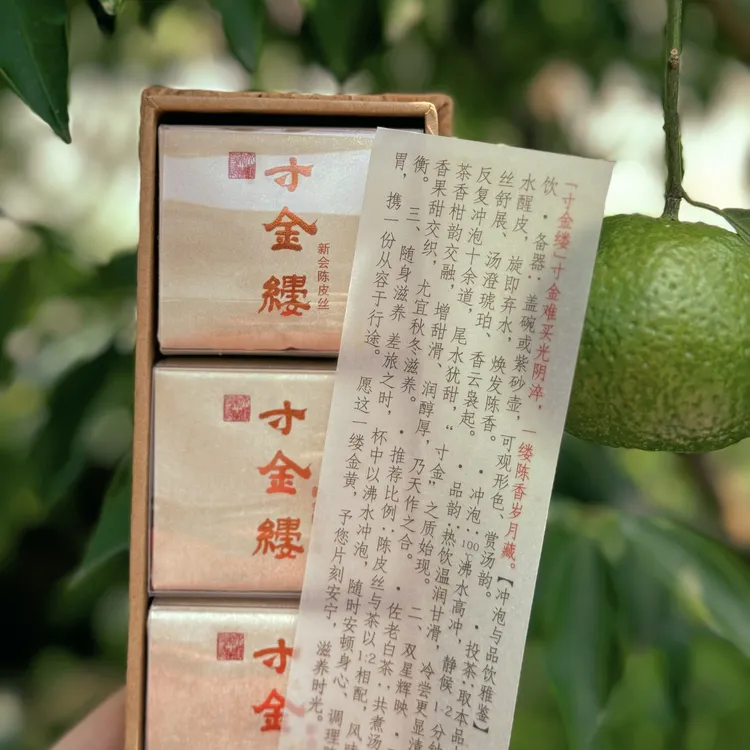 寸金縷
新会陈皮丝
寸金縷
寸金
「寸金缕」寸金难买光阴淬，一缕陈香岁月藏。【冲泡与品饮雅鉴】
饮·备器：盖碗或紫砂壶，可观形色、赏汤韵。·投茶：取本品
水醒皮，旋即弃水，焕发陈香。·冲泡：100℃沸水高冲，静候1-2分钟
丝舒展、汤澄琥珀、香云袅起。·品韵：热饮温润甘滑，冷尝更显清
反复冲泡十余道，尾水犹甜，“寸金”之质始现。二、双星辉映·
茶香柑韵交融，增甜滑、润醇厚，乃天作之合。·佐老白茶：共煮汤
香果甜交织，尤宜秋冬滋养。·推荐比例：陈皮丝与茶以1:2相配，风
衡。三、随身滋养 差旅之时，杯中以沸水冲泡，随时安顿身心，调理
胃，携一份从容于行途。愿这一缕金黄，予您片刻安宁，滋养时光。